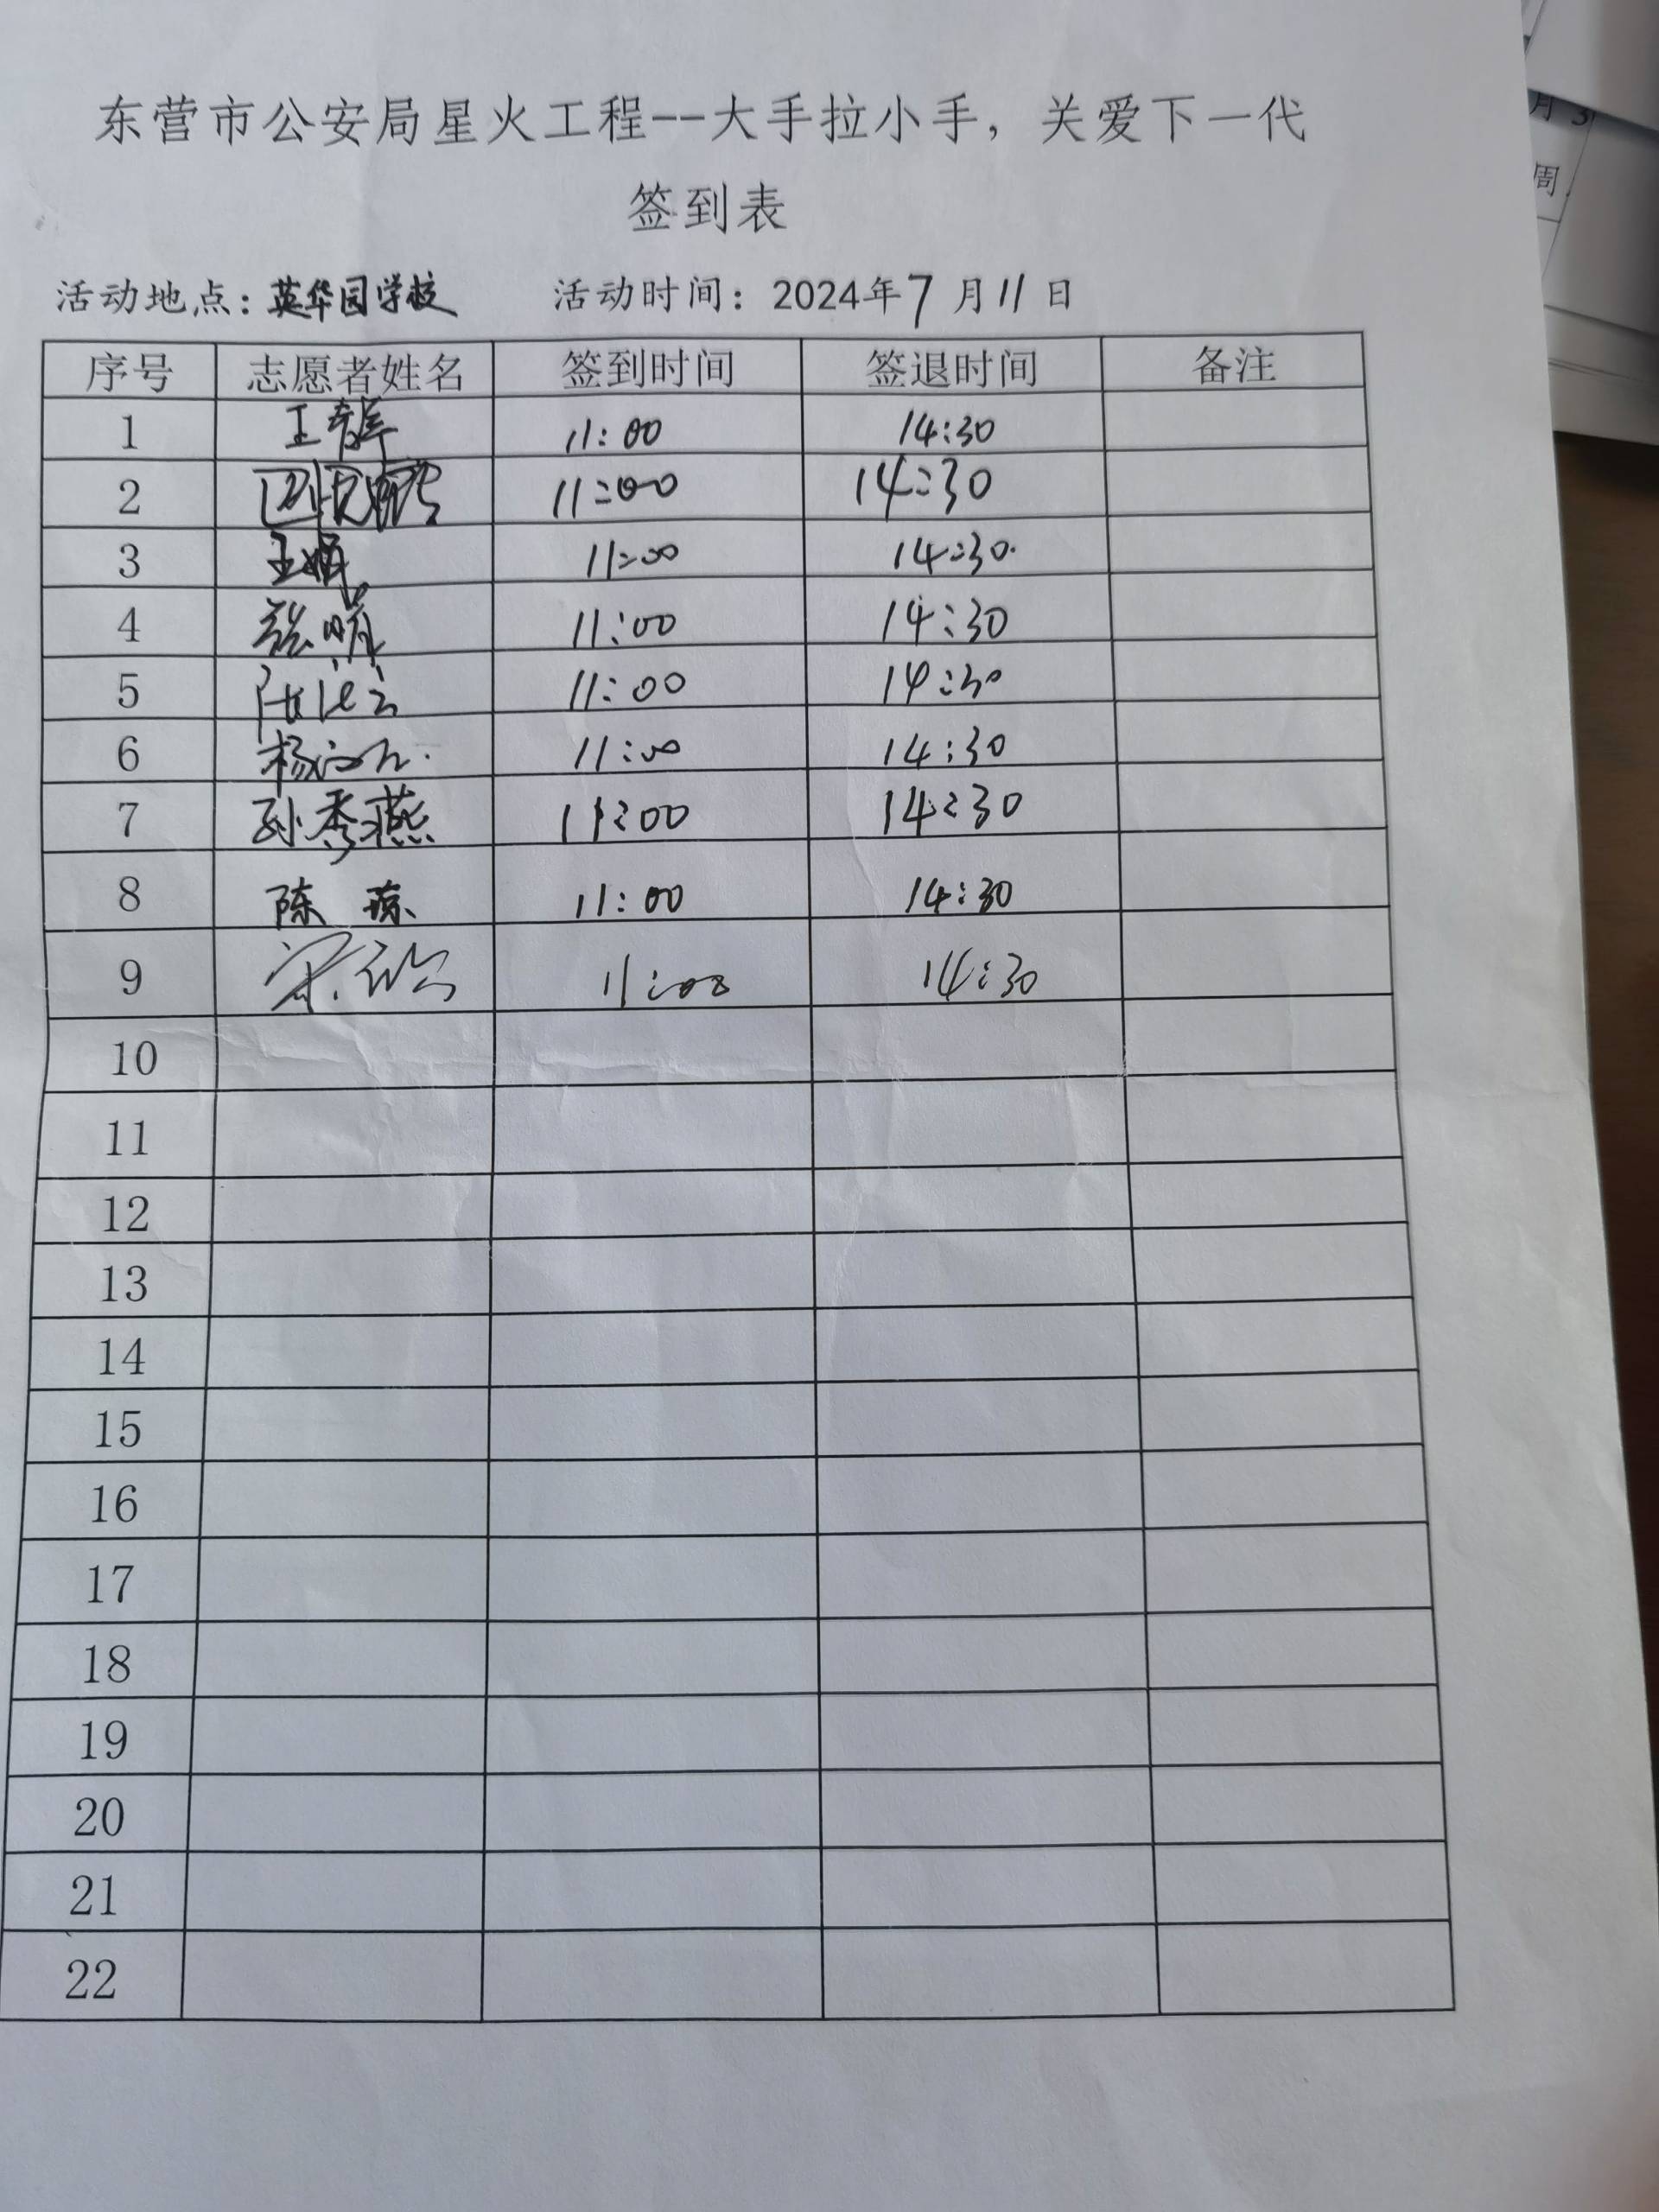 东营市公安局星火工程--大手拉小手，关爱下一代
签到表
活动地点：英华园学校 活动时间：2024年7月11日
序号 志愿者姓名 签到时间 签退时间 备注
1 王 11:00 14:30
2 11:00 14:30
3 王 11:00 14:30
4 张晓 11:00 14:30
5 11:00 14:30
6 杨 11:00 14:30
7 孙秀燕 11:00 14:30
8 陈琼 11:00 14:30
9 宋 11:00 14:30
10
11
12
13
14
15
16
17
18
19
20
21
22
月 3
周